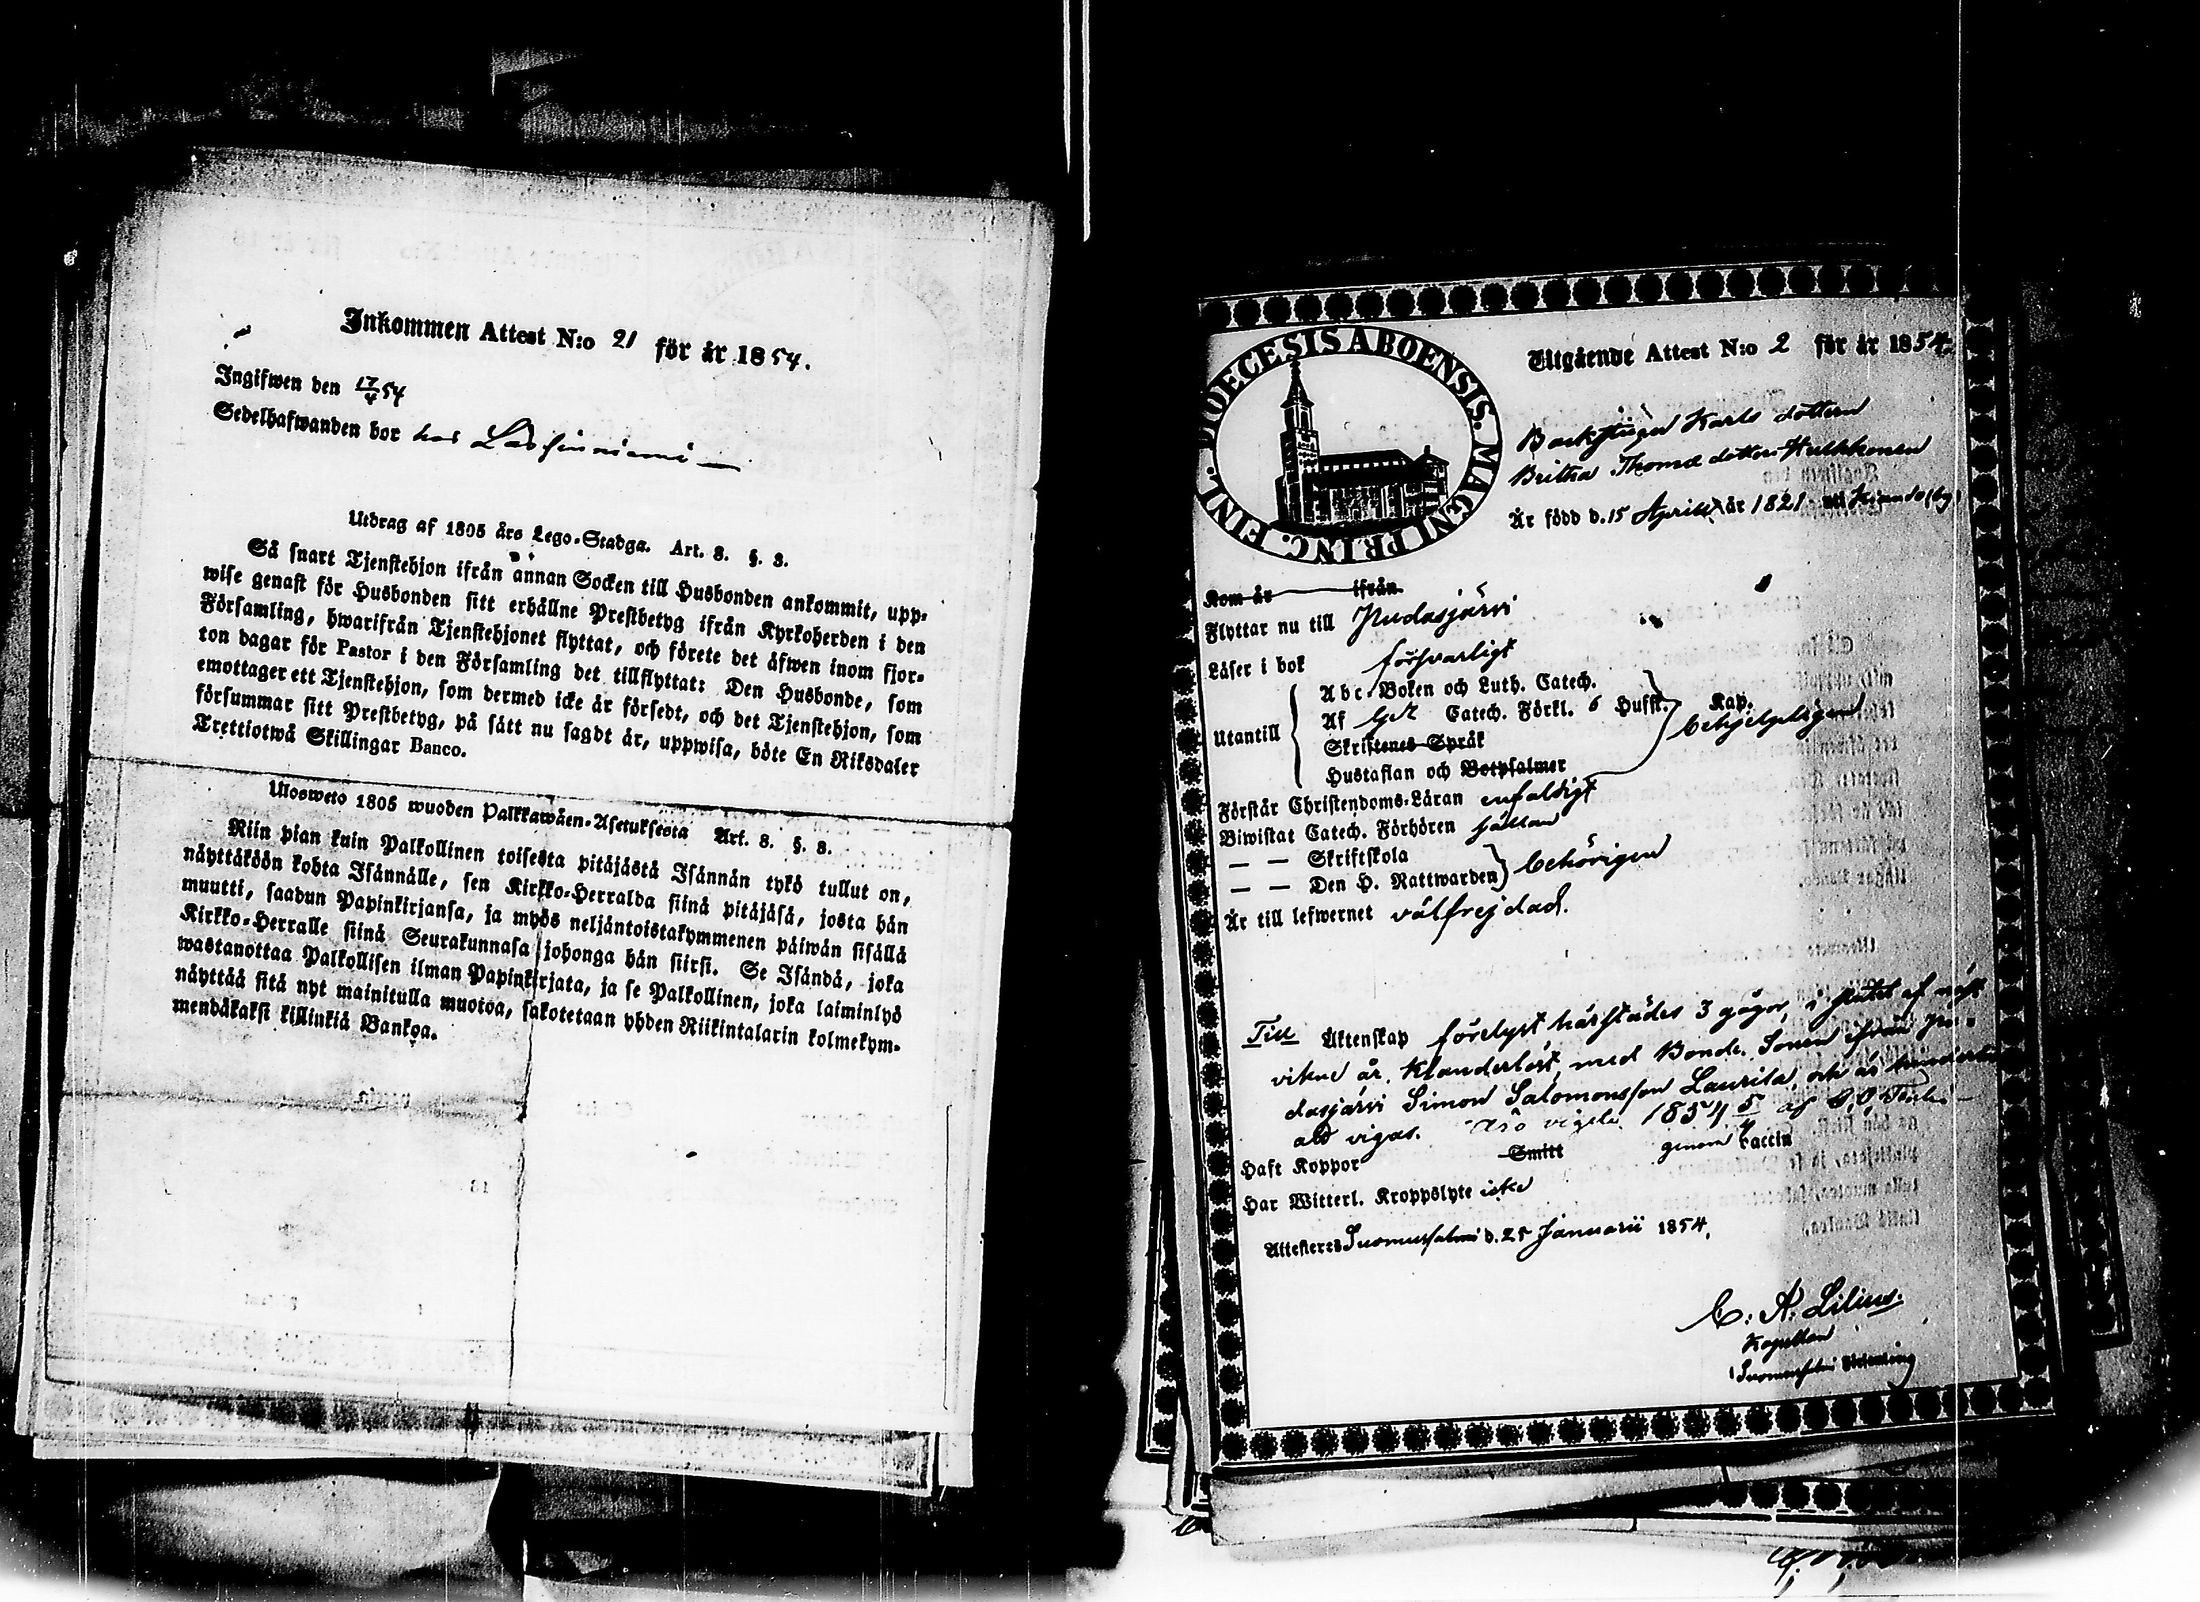 Inkommen Attest N:o 21 för år 1854.
Ingifwen den 17/4 54
Sedelhafwanden bor hos
Utdrag af 1805 års Lego-Stadga. Art. 8. §. 3.
Så snart Tjenstehjon ifrån annan Socken till Husbonden ankommit, upp-
wise genast för Husbonden sitt erhållne Prestbetyg ifrån Kyrkoherden i den
Församling, hwarifrån Tjenstehjonet flyttat, och förete det äfwen inom fjor-
ton dagar för Pastor i den Församling det tillflyttat: Den Husbonde, som
emottager ett Tjenstehjon, som dermed icke är försedt, och det Tjenstehjon, som
försummar sitt Prestbetyg, på sätt nu sagdt är, uppwisa, böte En Riksdaler
Trettiotwå Skillingar Banco.
Ulosweto 1805 wuoden Palkkawäen-Asetuksesta Art. 8. §. 3.
Niin pian kuin Palkollinen toisesta pitäjästä Isännän tykö tullut on,
näyttäköön kohta Isännälle, sen Kirkko-Herralda siinä pitäjäsä, josta hän
muutti, saadun Papinkirjansa, ja myös neljäntoistakymmenen päiwän sisällä
Kirkko-Herralle siinä Seurakunnasa johonga hän siirsi. Se Isändä, joka
wastanottaa Palkollisen ilman Papinkirjata, ja se Palkollinen, joka laiminlyö
näyttää sitä nyt mainitulla muotoa, sakotetaan yhden Riikintalarin kolmekym-
mendäkaksi killinkiä Bankoa.
DIOECESIS ABOENSIS. MAGNI PRINC. FINL.
Utgående Attest N:o 2 för år 1854.
Backstugu Karls dottern
Britha Thomæ dotter Hulkkonen
Är född d. 15 Aprill år 1821
Kom år ifrån
Flyttar nu till Pudasjärvi
Läser i bok försvarligt
Utantill
Abc-Boken och Luth. Catech.
Af Catech. Förkl. 6 Hufst. Kap.
Skriftenes Språk
Hustaflan och Botpsalmer
behjelpligen
Förstår Christendoms-Läran enfaldigt
Biwistat Catech. Förhören sällan
— — Skriftskola
— — Den H. Nattwarden behörigen
Är till lefwernet välfrejdad.
Till Äktenskap förelyst härstädes 3 gågor, i slutet af näst
vikne år, klanderlöst, med Bonde Sonen ifrån Pu-
dasjärvi Simon Salomonsson Laurila, och är hinderlös
att vigas. 1854
Haft Koppor Smitt genom Vaccin
Har Witterl. Kroppslyte icke
Attesteres Suomussalmi d. 25 Januarii 1854.
C. A. Lilius.
Kapellan
i Suomussalmi